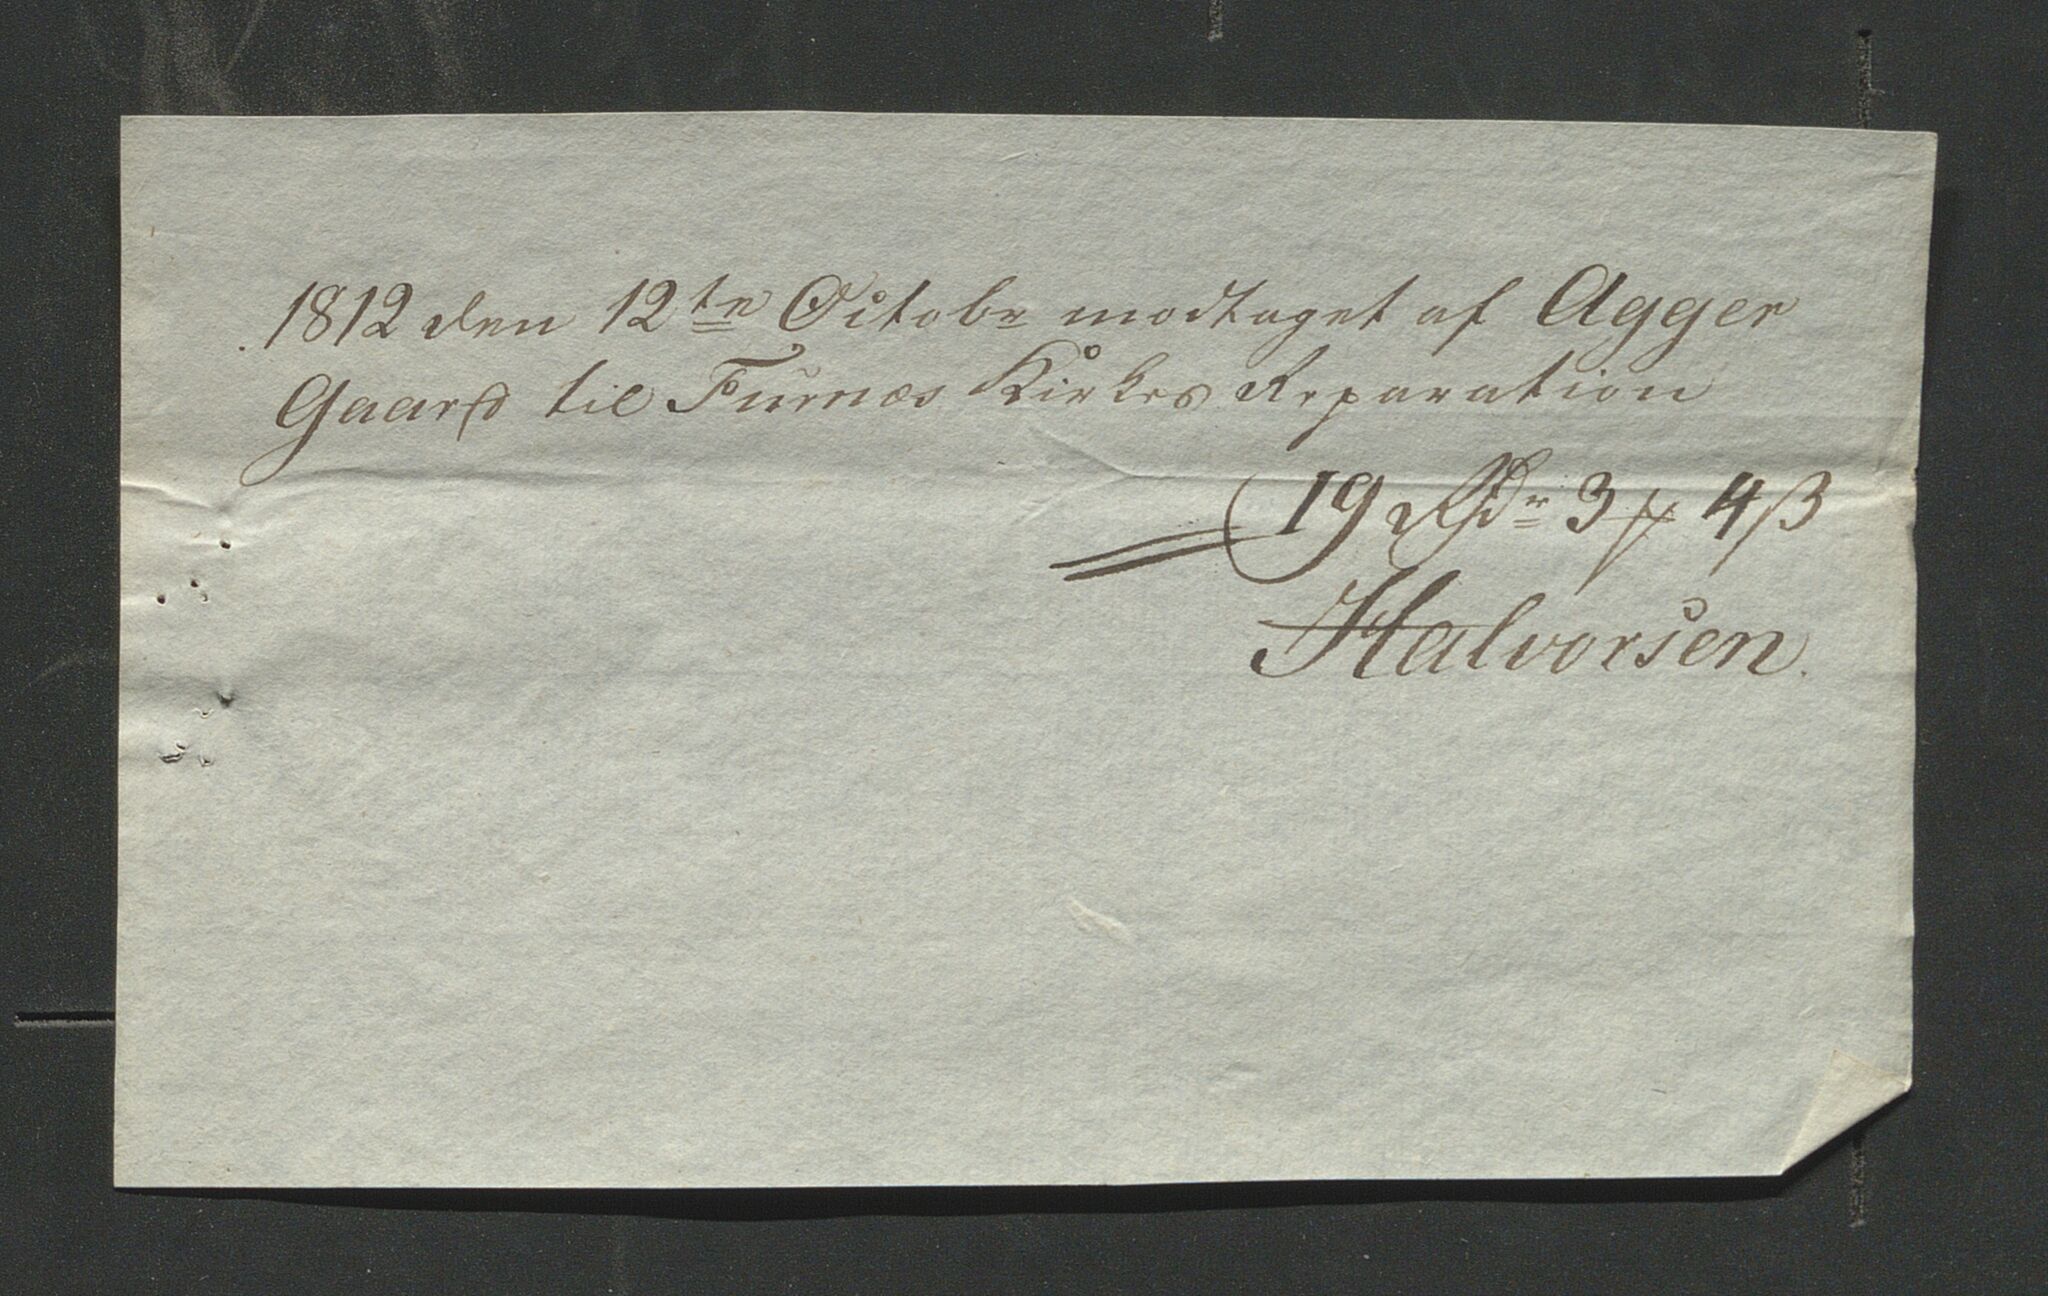 1812 den 12te Octobr modtaget af Agger
Gaard til Furnæs Kirkes Reparation
19 Rdr 3 ƶ 4 ß
Halvorsen.